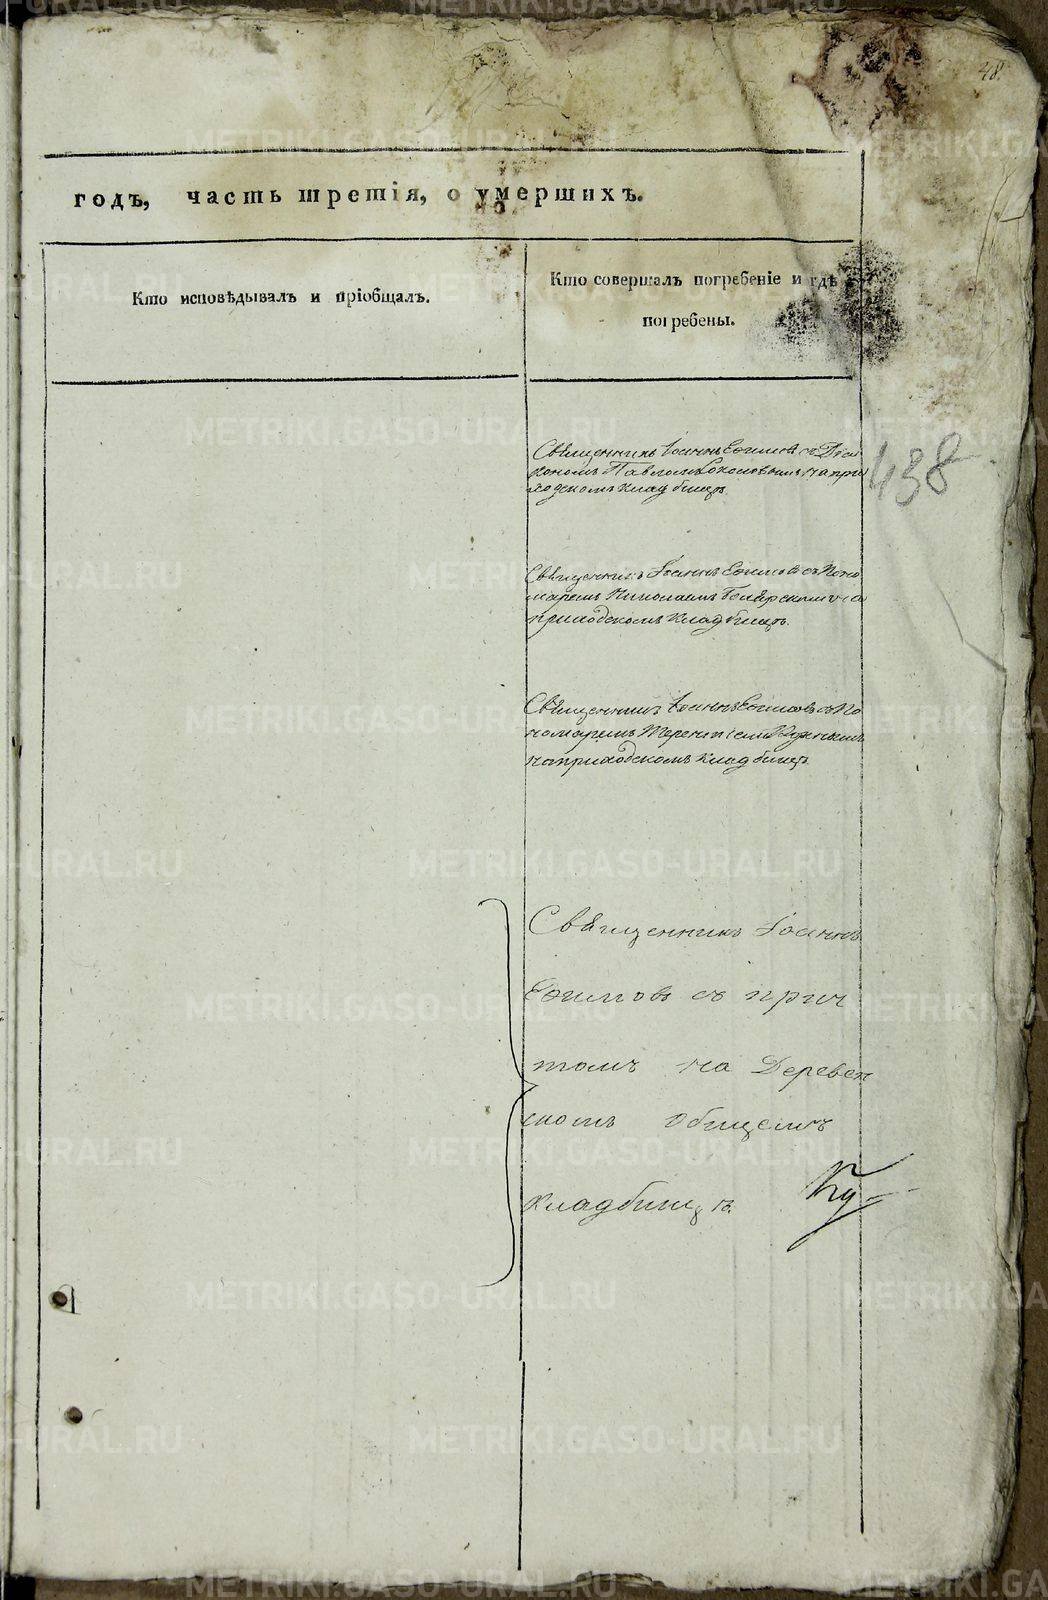 48.
годъ, часть третія, о умершихъ.
Кто исповѣдывалъ и пріобщалъ.
Кто совершалъ погребеніе и гдѣ
погребены.
Священникъ Іоаннъ Ефимовъ съ Діа
кономъ Павломъ Соколовымъ на при
ходскомъ кладбищѣ.
438
Священникъ Іоаннъ Ефимовъ съ Поно
маремъ Николаемъ на
приходскомъ кладбищѣ.
Священникъ Іоаннъ Ефимовъ съ По
номаремъ Терентіемъ
на приходскомъ кладбищѣ.
Священникъ Іоаннъ
Ефимовъ съ прич
томъ на Деревен
скомъ общемъ
кладбищѣ.
METRIKI.GASO-URAL.RU